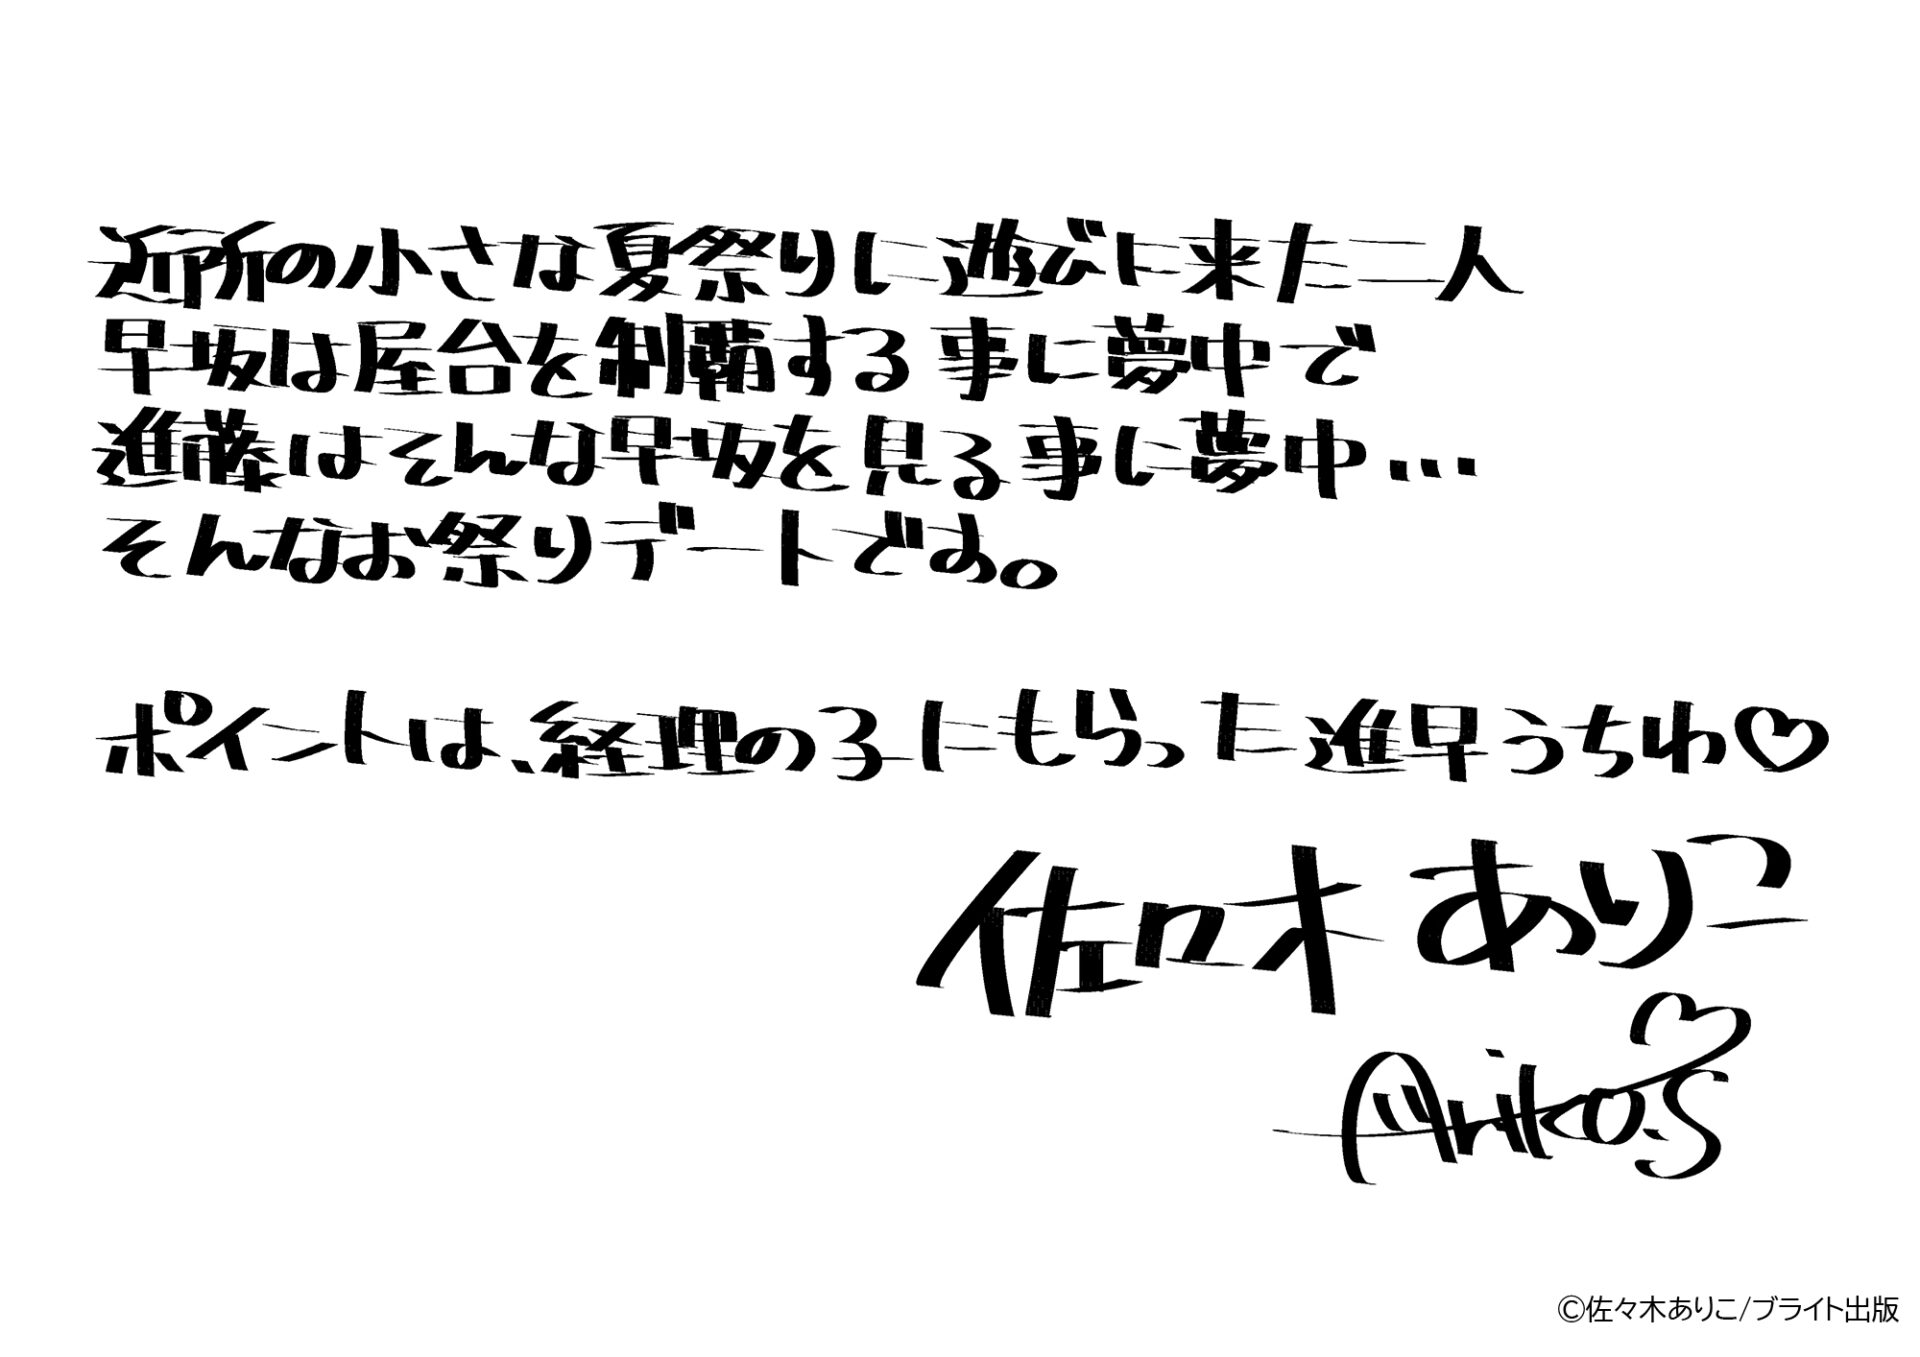 近所の小さな夏祭りに遊びに来た二人
早坂は屋台を制覇する事に夢中で
進藤はそんな早坂を見る事に夢中…
そんなお祭りデートです。
ポイントは、経理の子にもらった進早うちわ♡
佐々木ありこ
Ariko.S
©佐々木ありこ/ブライト出版